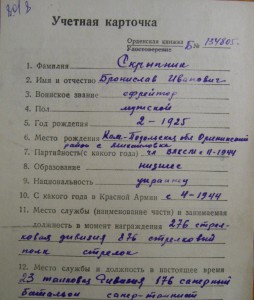 Учетная карточка
Орденская книжка
Удостоверение Б № 134805.
1. Фамилия Скрыпник
2. Имя и отчество Бронислав Иванович
3. Воинское звание ефрейтор
4. Пол мужской
5. Год рождения 2-1925
6. Место рождения Кам-Подольская обл
район с
7. Партийность (с какого года) чл ВЛКСМ с 4-1944
8. Образование низшее
9. Национальность украинц
10. С какого года в Красной Армии с 4-1944
11. Место службы (наименование части) и занимаемая
должность в момент награждения 276 стрел-
ковая дивизия 876 стрелковый
полк стрелок
12. Место службы и должность в настоящее время
23 танковая дивизия 176 саперный
батальон сапер-